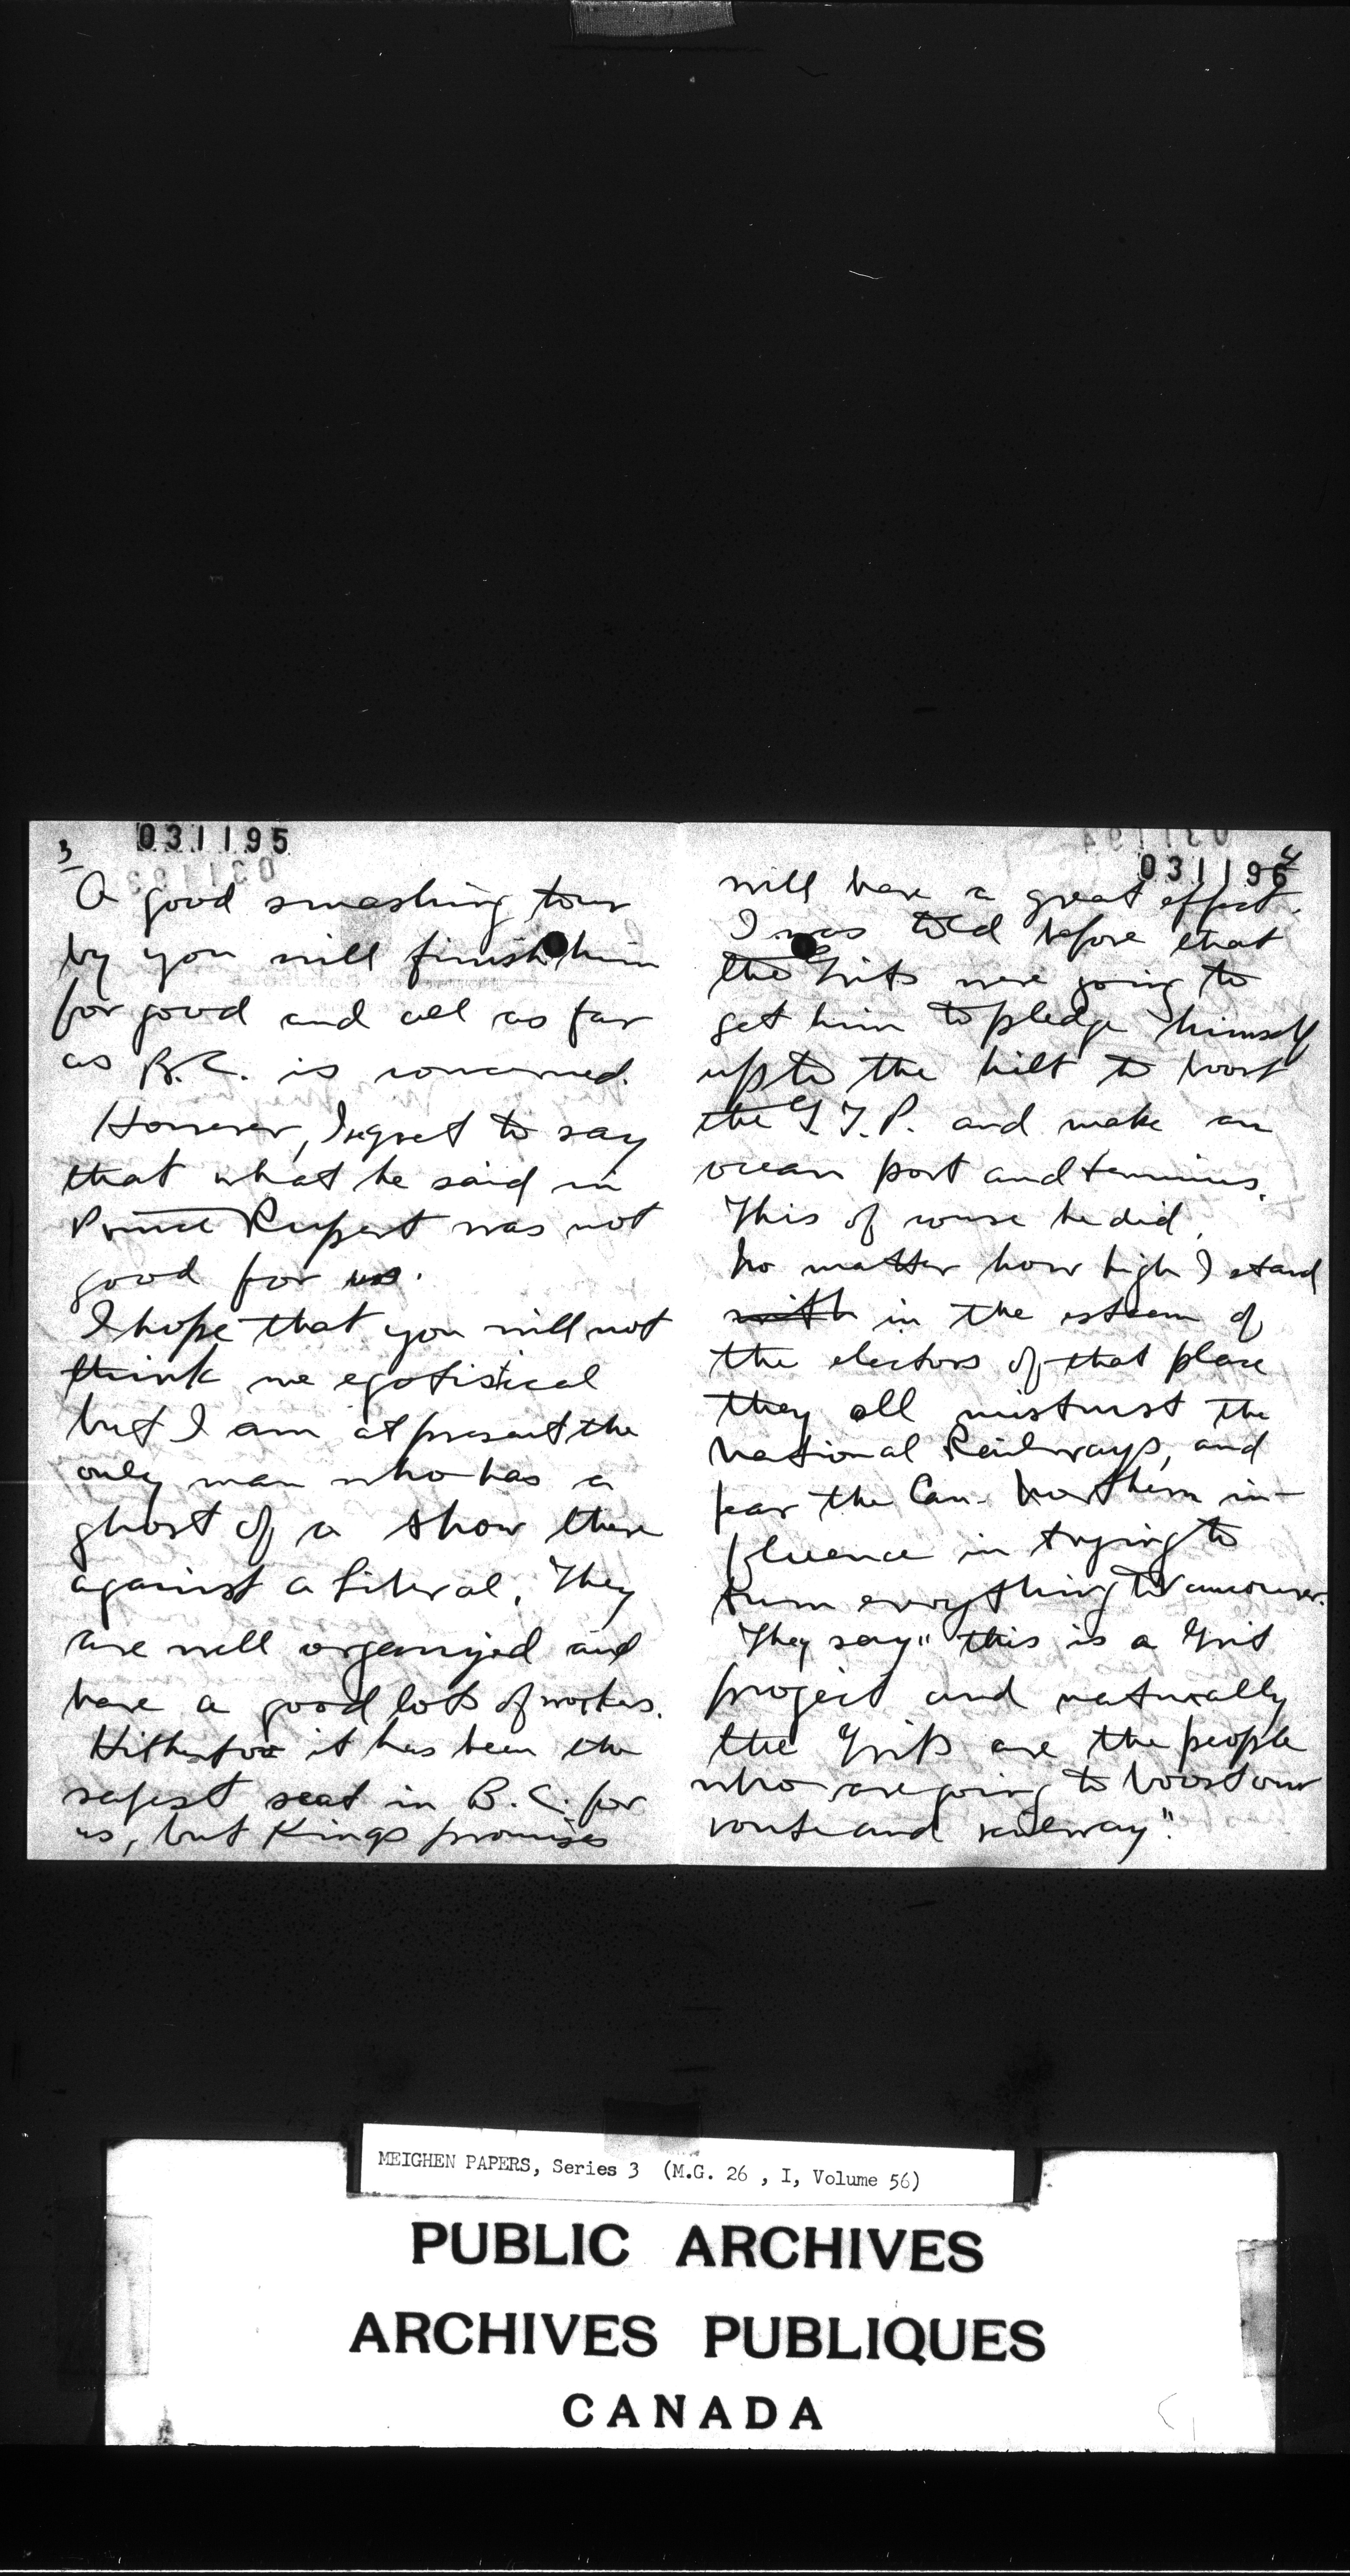 3
031195
A good smashing tour
by you will finish him
for good and all as far
as B.C. is concerned.
However, I regret to say
that what he said in
Prince Rupert was not
good for us.
I hope that you will not
think me egotistical
but I am at present the
only man who has a
ghost of a show there
against a Liberal. They
are well organized and
have a good lots of workers.
Hitherto it has been the
safest seat in B.C. for
us, but Kings promises
4
031196
will have a great effect.
I was told before that
the Grits were going to
get him to pledge himself
up to the hilt to boost
the G.T.P. and make an
ocean port and terminus.
This of course he did.
No matter how high I stand
with in the esteem of
the electors of that place
they all mistrust the
National Railways, and
fear the Can. Northern in-
fluence in trying to
turn everything to Vancouver.
They say "this is a Grit
project and naturally
the Grits are the people
who are going to boost our
route and railway".
MEIGHEN PAPERS, Series 3 (M.G. 26 , I, Volume 56)
PUBLIC ARCHIVES
ARCHIVES PUBLIQUES
CANADA